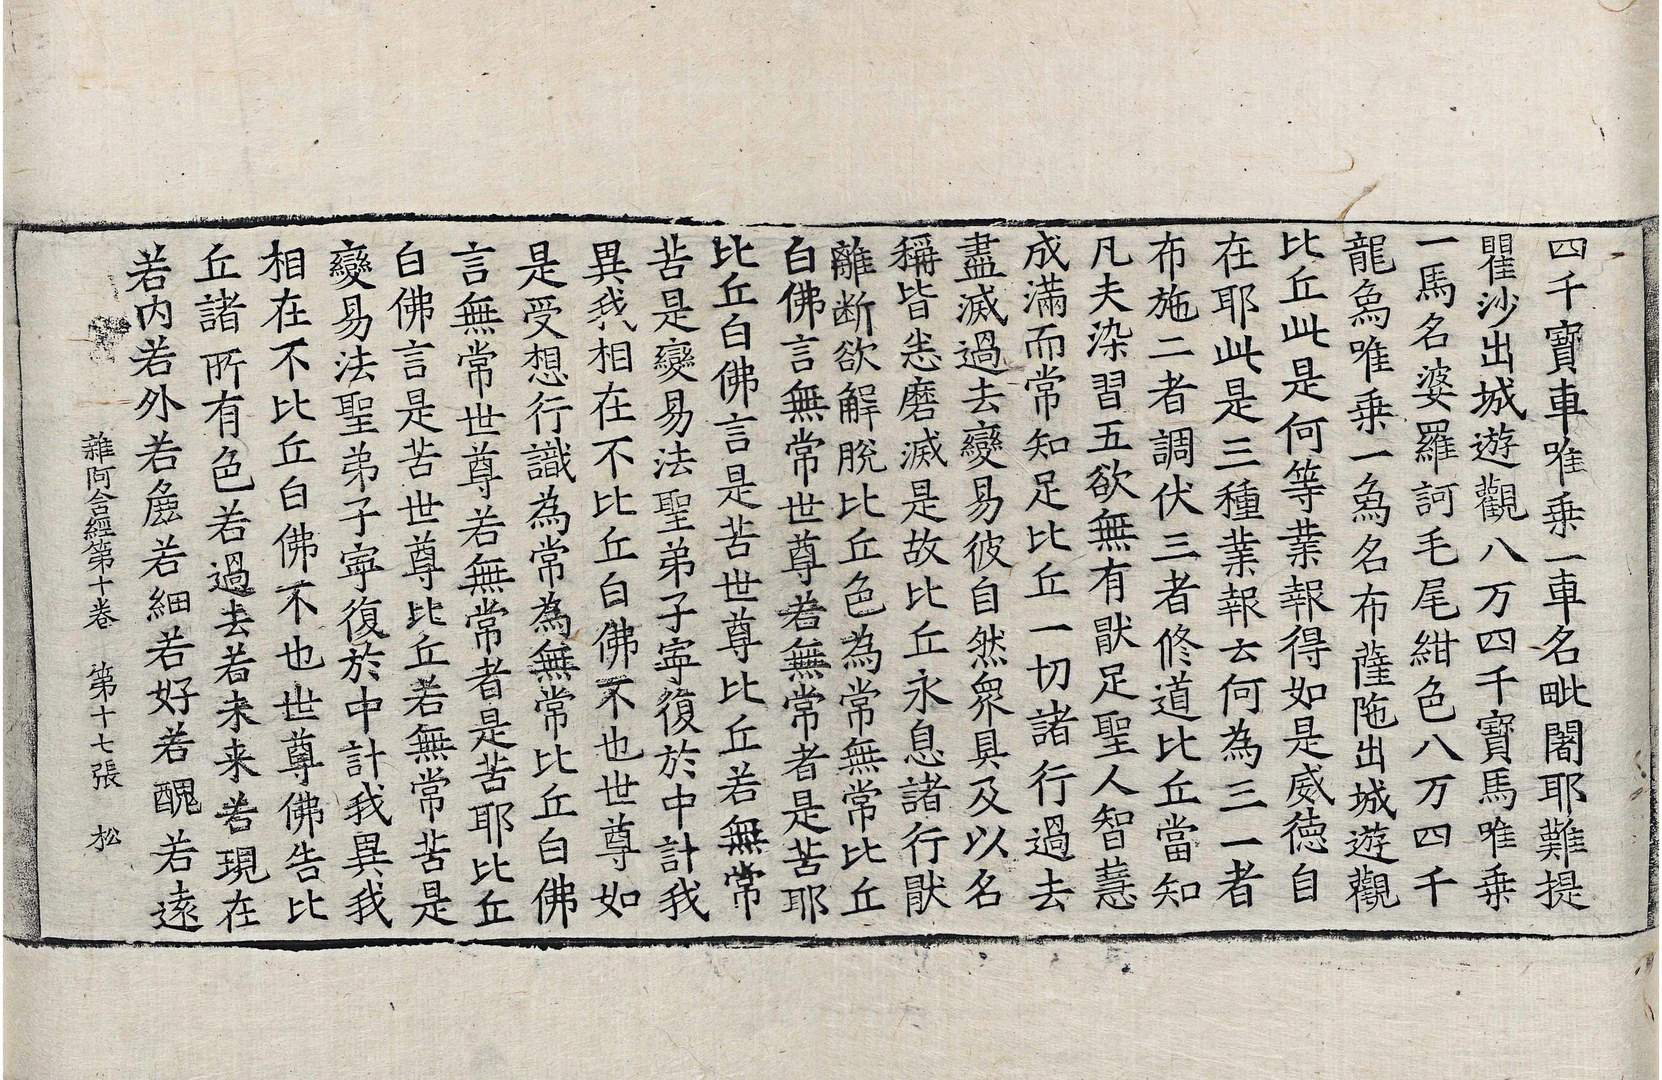 四千寶車唯乗一車名毗闍耶難提
瞿沙出城遊觀八万四千寶馬唯乗
一馬名婆羅訶毛尾紺色八万四千
龍象唯乗一象名布薩陁出城遊觀
比丘此是何等業報得如是威德自
在耶此是三種業報云何為三一者
布施二者調伏三者修道比丘當知
凡夫染習五欲無有猒足聖人智慧
成滿而常知足比丘一切諸行過去
盡滅過去變易彼自然衆具及以名
稱皆悉磨滅是故比丘永息諸行猒
離断欲解脫比丘色為常無常比丘
白佛言無常世尊若無常者是苦耶
比丘白佛言是苦世尊比丘若無常
苦是變易法聖弟子寧復於中計我
異我相在不比丘白佛不也世尊如
是受想行識為常為無常比丘白佛
言無常世尊若無常者是苦耶比丘
白佛言是苦世尊比丘若無常苦是
變易法聖弟子寧復於中計我異我
相在不比丘白佛不也世尊佛告比
丘諸所有色若過去若未来若現在
若內若外若麁若細若好若醜若遠
雜阿含經第十卷 第十七張 松